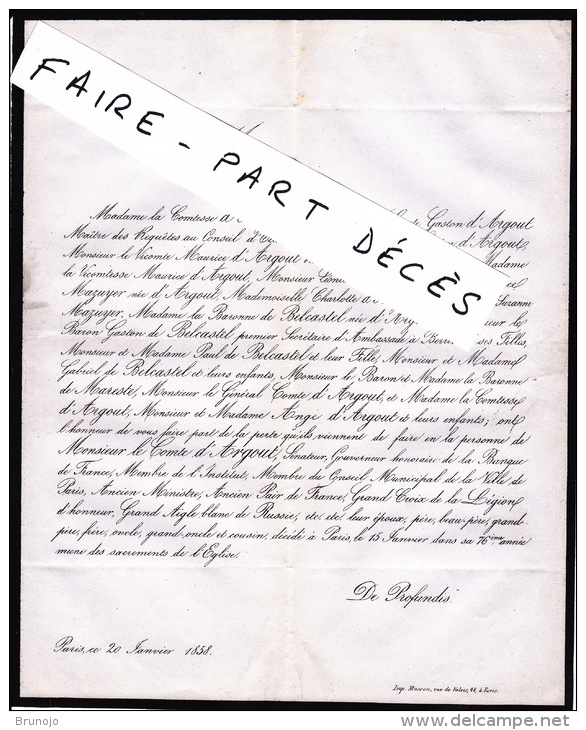 FAIRE-PART DÉCÈS
Madame la Comtesse d' Gaston d'Argout
Maître des Requêtes au Conseil d' d'Argout,
Monsieur le Vicomte Maurice d'Argout Madame
la Vicomtesse Maurice d'Argout, Monsieur
Mazuyer née d'Argout, Mademoiselle Charlotte Suzanne
Mazuyer, Madame la Baronne de Belcastel née d' le
Baron Gaston de Belcastel premier Secrétaire d'Ambassade à ses Filles,
Monsieur et Madame Paul de Belcastel et leur Fille, Monsieur et Madame
Gabriel de Belcastel et leurs enfants, Monsieur le Baron et Madame la Baronne
de Mareste, Monsieur le Général Comte d'Argout, et Madame la Comtesse
d'Argout, Monsieur et Madame Ange d'Argout et leurs enfants; ont
l'honneur de vous faire part de la perte qu'ils viennent de faire en la personne de
Monsieur le Comte d'Argout, Sénateur, Gouverneur honoraire de la Banque
de France, Membre de l'Institut, Membre du Conseil Municipal de la Ville de
Paris, Ancien Ministre, Ancien Pair de France, Grand Croix de la Légion
d'honneur, Grand Aigle blanc de Russie, etc. etc. leur époux, père, beau-père, grand-
père, frère, oncle, grand-oncle et cousin, décédé à Paris, le 15 Janvier dans sa 76ème année
muni des sacrements de l'Eglise.
De Profundis.
Paris, ce 20 Janvier 1858.
Imp. Mascon, rue de Valois, 46, à Paris.
Brunojo
delcampe.net